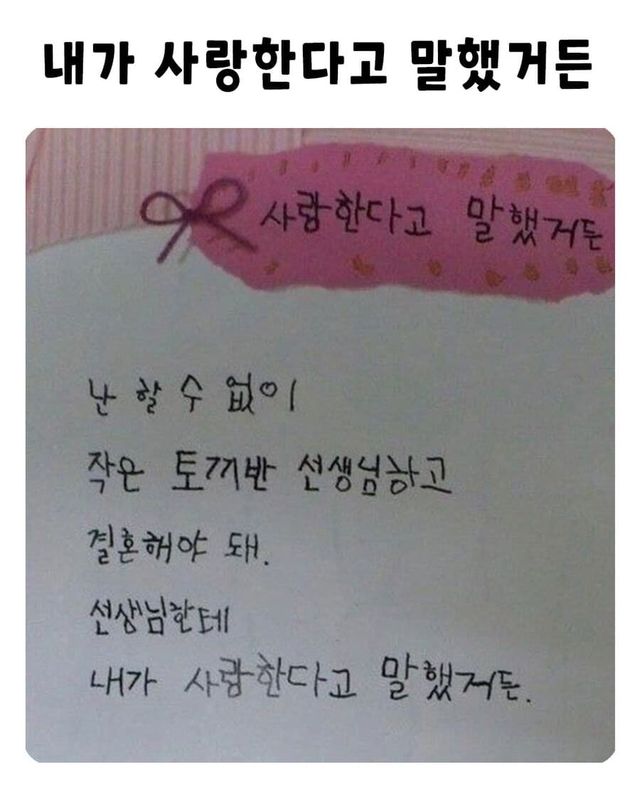 내가 사랑한다고 말했거든
사랑한다고 말했거든
난 할 수 없이
작은 토끼반 선생님하고
결혼해야 돼.
선생님한테
내가 사랑한다고 말했거든.